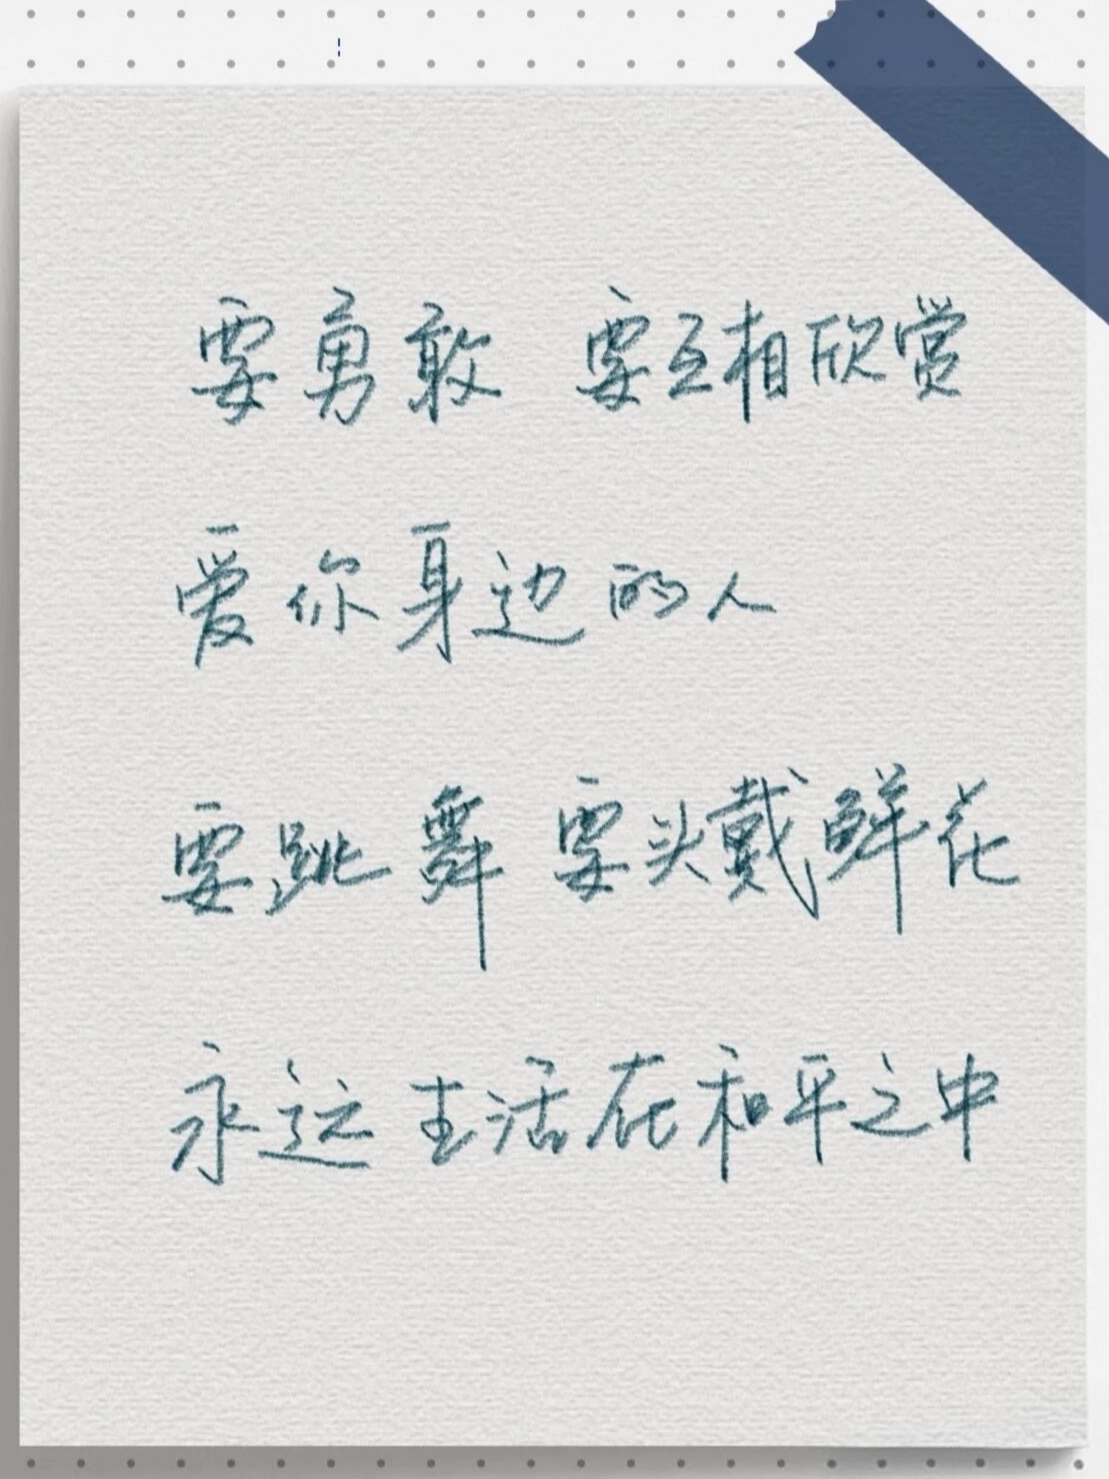 要勇敢 要互相欣赏
爱你身边的人
要跳舞 要头戴鲜花
永远生活在和平之中